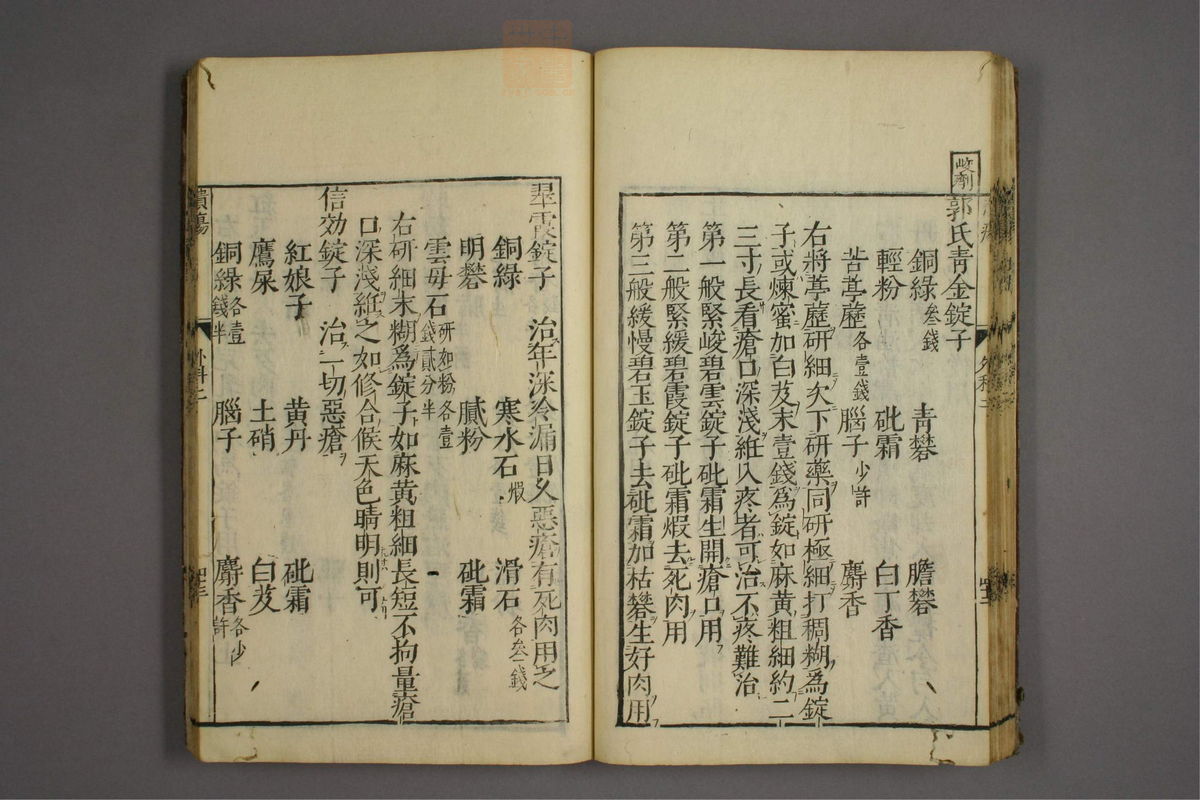 郭氏青金錠子
銅綠叁錢 青礬 膽礬
輕粉 砒霜 白丁香
苦葶藶各壹錢 腦子少許 麝香
右將葶藶研細次下研藥同研極細打稠糊爲錠
子或煉蜜加白芨末壹錢爲錠如麻黃粗細約二
三寸長看瘡口深淺紝入疼者可治不疼難治
第一般緊峻碧雲錠子砒霜生開瘡口用
第二般緊緩碧霞錠子砒霜煆去死肉用
第三般緩慢碧玉錠子去砒霜加枯礬生好肉用
翠霞錠子 治年深冷漏日久惡瘡有死肉用之
銅綠 寒水石煆 滑石各叁錢
明礬 膩粉 砒霜
雲母石研如粉各壹錢貳分半
右研細末糊爲錠子如麻黃粗細長短不拘量瘡
口深淺紝之如修合候天色晴明則可
信効錠子 治一切惡瘡
紅娘子 黃丹 砒霜
鷹屎 土硝 白芨
銅綠各壹錢半 腦子 麝香各少許
潰瘍
外科二